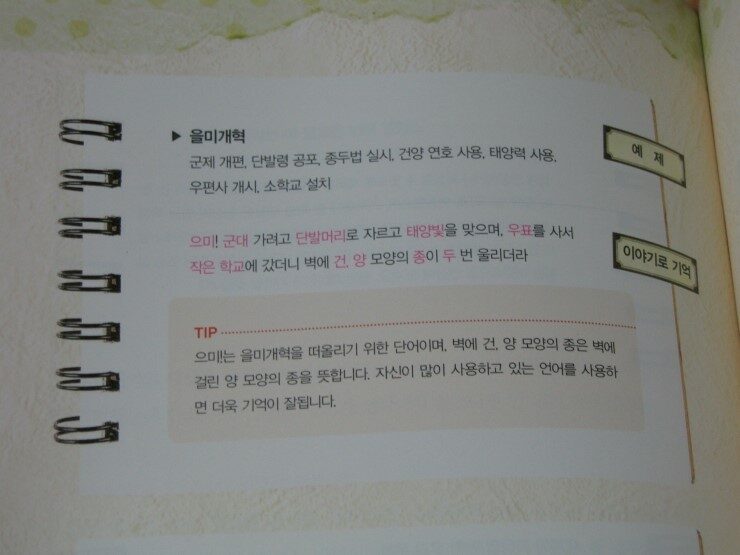 ▶ 을미개혁
군제 개편, 단발령 공포, 종두법 실시, 건양 연호 사용, 태양력 사용,
우편사 개시, 소학교 설치
예 제
으미! 군대 가려고 단발머리로 자르고 태양빛을 맞으며, 우표를 사서
작은 학교에 갔더니 벽에 건, 양 모양의 종이 두 번 울리더라
이야기로 기억
TIP
으미!는 을미개혁을 떠올리기 위한 단어이며, 벽에 건, 양 모양의 종은 벽에
걸린 양 모양의 종을 뜻합니다. 자신이 많이 사용하고 있는 언어를 사용하
면 더욱 기억이 잘됩니다.